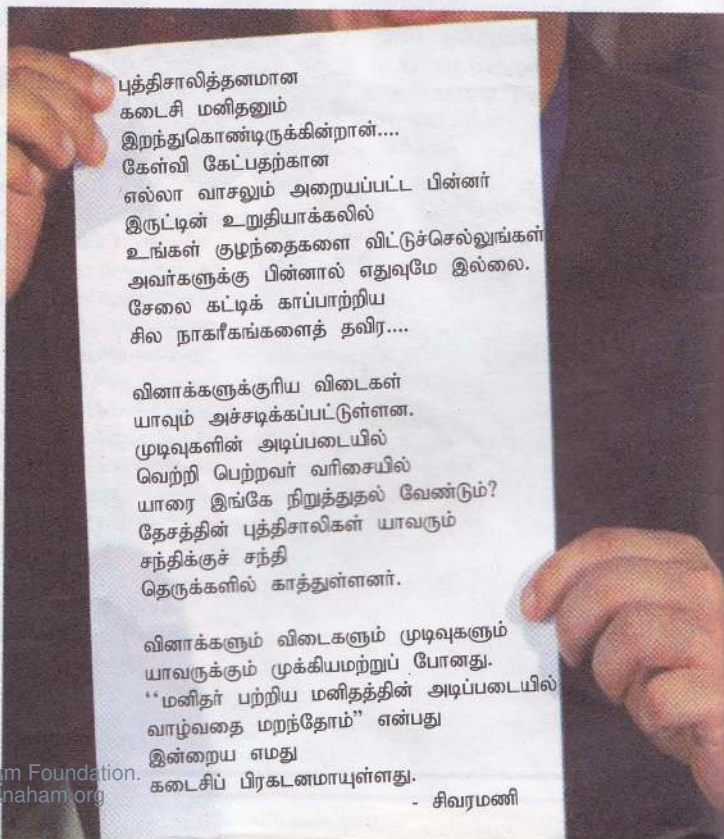 புத்திசாலித்தனமான
கடைசி மனிதனும்
இறந்துகொண்டிருக்கின்றான்....
கேள்வி கேட்பதற்கான
எல்லா வாசலும் அறையப்பட்ட பின்னர்
இருட்டின் உறுதியாக்கலில்
உங்கள் குழந்தைகளை விட்டுச்செல்லுங்கள்
அவர்களுக்கு பின்னால் எதுவுமே இல்லை.
சேலை கட்டிக் காப்பாற்றிய
சில நாகரீகங்களைத் தவிர....
வினாக்களுக்குரிய விடைகள்
யாவும் அச்சடிக்கப்பட்டுள்ளன.
முடிவுகளின் அடிப்படையில்
வெற்றி பெற்றவர் வரிசையில்
யாரை இங்கே நிறுத்துதல் வேண்டும்?
தேசத்தின் புத்திசாலிகள் யாவரும்
சந்திக்குச் சந்தி
தெருக்களில் காத்துள்ளனர்.
வினாக்களும் விடைகளும் முடிவுகளும்
யாவருக்கும் முக்கியமற்றுப் போனது.
“மனிதர் பற்றிய மனிதத்தின் அடிப்படையில்
வாழ்வதை மறந்தோம்” என்பது
இன்றைய எமது
கடைசிப் பிரகடனமாயுள்ளது.
- சிவரமணி
Foundation.